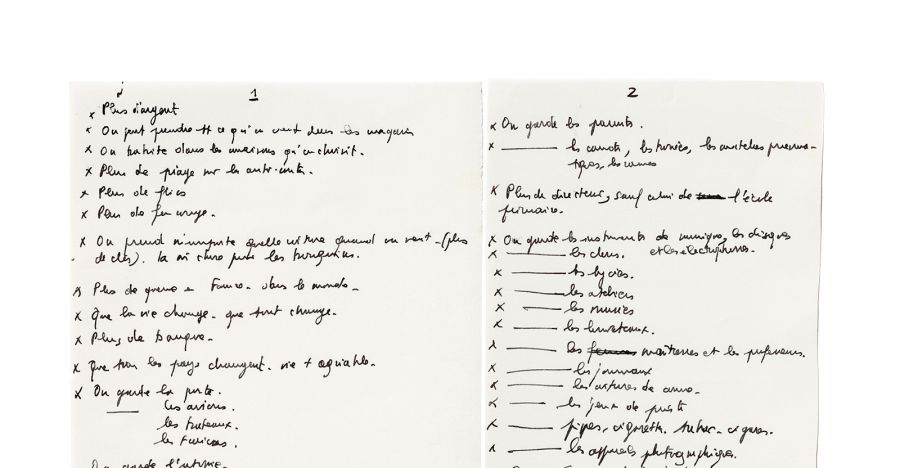 1
x Plus d'argent
x On peut prendre tt ce qu'on veut dans les magasins
x On habite dans les maisons qu'on choisit.
x Plus de péage sur les auto-routes.
x Plus de flics
x Plus de
x On prend n'importe quelle voiture quand on veut - (plus
de clés).
x Plus de guerre en France. dans le monde -
x Que la vie change - que tout change.
x Plus de banque.
x Que tous les pays changent. vie + agréable.
x On garde la poste.
les avions.
les bateaux.
les fusées.
On garde l'usine.
2
x On garde les parents.
x les canots, les matelas pneuma-
tiques, les cannes
x Plus de directeur, sauf celui de l'école
primaire.
x On garde les instruments de musique, les disques
x les et les électrophones.
x les lycées.
x les ateliers
x les musées
x les
x les maîtresses et les professeurs.
x les journaux
x les voitures de
x les jeux de
x pipes, cigarettes, tabac, cigares.
x les appareils photographiques.